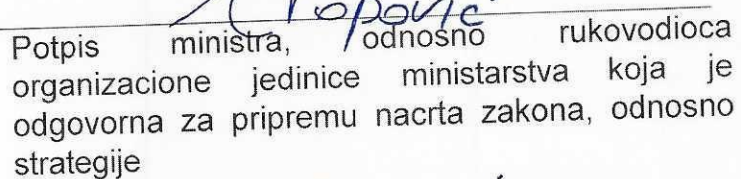 Popović
Potpis ministra, odnosno rukovodioca
organizacione jedinice ministarstva koja je
odgovorna za pripremu nacrta zakona, odnosno
strategije